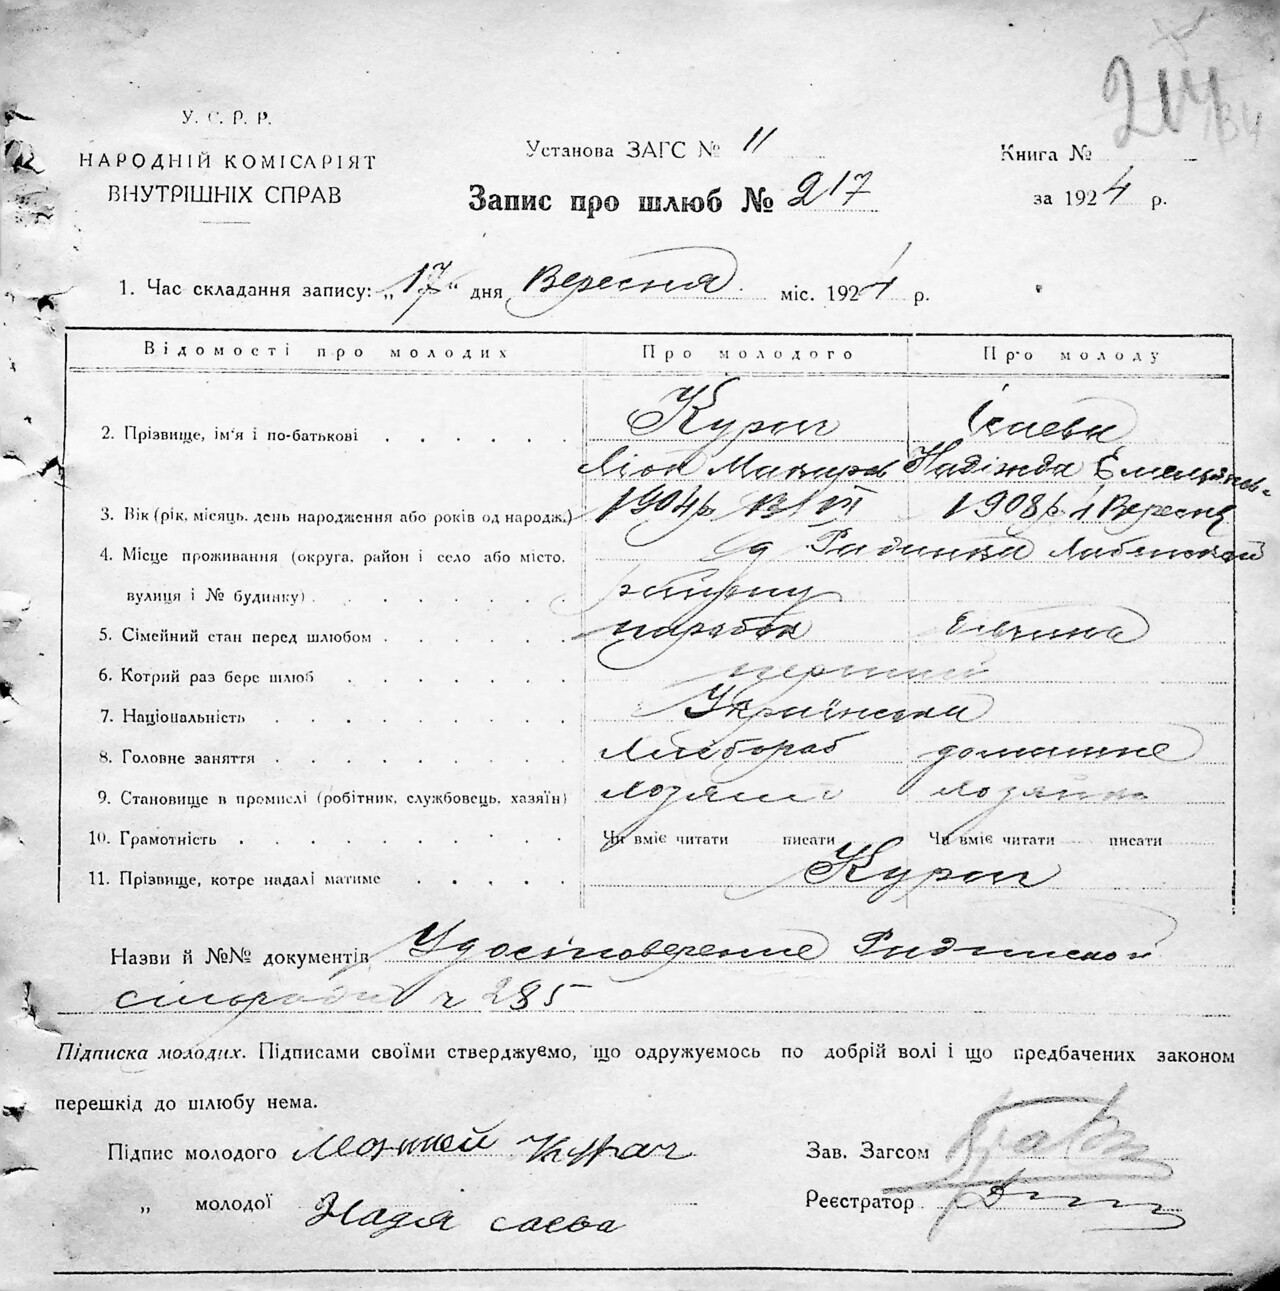 У. С. Р. Р.
НАРОДНІЙ КОМІСАРІЯТ
ВНУТРІШНІХ СПРАВ
Установа ЗАГС № 11
Запис про шлюб № 217
Книга №
за 1924 р.
1. Час складання запису: „17" дня Вересня міс. 1924 р.
Відомості про молодих Про молодого Про молоду
2. Прізвище, ім'я і по-батькові
Надіжда
3. Вік (рік, місяць, день народження або років од народж.) 1904 р. 1908 р. 1 Вересня
4. Місце проживання (округа, район і село або місто,
вулиця і № будинку)
5. Сімейний стан перед шлюбом парубок дівчина
6. Котрий раз бере шлюб перший
7. Національність Українська
8. Головне заняття Хлібороб домашнє
9. Становище в промислі (робітник, службовець, хазяїн) хозяїн хозяйка
10. Грамотність Чи вміє читати писати Чи вміє читати писати
11. Прізвище, котре надалі матиме
Назви й №№ документів Удостоверение
сільради ч 285
Підписка молодих. Підписами своїми стверджуємо, що одружуємось по добрій волі і що предбачених законом
перешкід до шлюбу нема.
Підпис молодого Курач
Зав. Загсом
„ молодої Надія саєва
Реєстратор